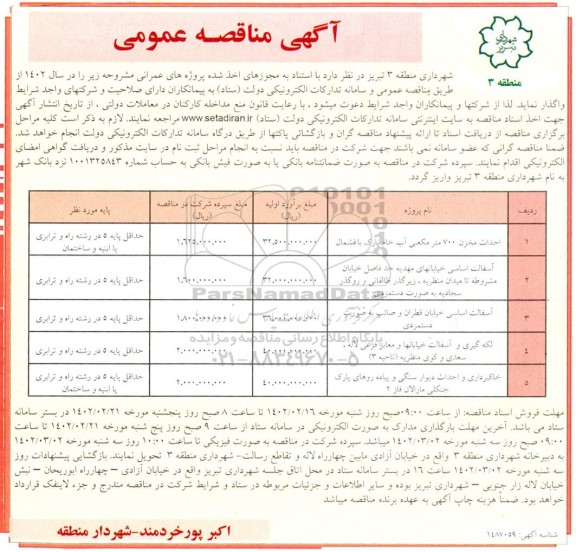 آگهی مناقصه عمومی
شهرداری تبریز
منطقه ۳
شهرداری منطقه ۳ تبریز در نظر دارد با استناد به مجوزهای اخذ شده پروژه های عمرانی مشروحه زیر را در سال ۱۴۰۲ از
طریق مناقصه عمومی و سامانه تدارکات الکترونیکی دولت (ستاد) به پیمانکاران دارای صلاحیت و شرکتهای واجد شرایط
واگذار نماید. لذا از شرکتها و پیمانکاران واجد شرایط دعوت میشود ، با رعایت قانون منع مداخله کارکنان در معاملات دولتی ، از تاریخ انتشار آگهی
جهت اخذ اسناد مناقصه به سایت اینترنتی سامانه تدارکات الکترونیکی دولت (ستاد) www.setadiran.ir مراجعه نمایند. لازم به ذکر است کلیه مراحل
برگزاری مناقصه از دریافت اسناد تا ارائه پیشنهاد مناقصه گران و بازگشائی پاکتها از طریق درگاه سامانه تدارکات الکترونیکی دولت انجام خواهد شد.
ضمنا مناقصه گرانی که عضو سامانه نمی باشند جهت شرکت در مناقصه باید نسبت به انجام مراحل ثبت نام در سایت مذکور و دریافت گواهی امضای
الکترونیکی اقدام نمایند. سپرده شرکت در مناقصه به صورت ضمانتنامه بانکی یا به صورت فیش بانکی به حساب شماره ۱۰۰۱۳۲۵۸۴۳ نزد بانک شهر
به نام شهرداری منطقه ۳ تبریز واریز گردد.
ردیف نام پروژه مبلغ برآورد اولیه (ریال) مبلغ سپرده شرکت در مناقصه (ریال) پایه مورد نظر
۱ احداث مخزن ۷۰۰ متر مکعبی آب خام پارک باغشمال ۳۲,۵۰۰,۰۰۰,۰۰۰ ۱,۶۲۵,۰۰۰,۰۰۰ حداقل پایه ۵ در رشته راه و ترابری یا ابنیه و ساختمان
۲ آسفالت اساسی خیابانهای مهدیه حد فاصل خیابان مشروطه تا میدان منظریه ، زیرگذر طالقانی و روگذر سجادیه به صورت دستمزدی ۳۲,۰۰۰,۰۰۰,۰۰۰ ۱,۶۰۰,۰۰۰,۰۰۰ حداقل پایه ۵ در رشته راه و ترابری
۳ آسفالت اساسی خیابان قطران و صائب به صورت دستمزدی ۳۶,۰۰۰,۰۰۰,۰۰۰ ۱,۸۰۰,۰۰۰,۰۰۰ حداقل پایه ۵ در رشته راه و ترابری
۴ لکه گیری و آسفالت خیابانها و معابر فرعی لاله ، سعدی و کوی منظریه (ناحیه ۳) ۴۰,۰۰۰,۰۰۰,۰۰۰ ۲,۰۰۰,۰۰۰,۰۰۰ حداقل پایه ۵ در رشته راه و ترابری
۵ خاکبرداری و احداث دیوار سنگی و پیاده روهای پارک جنگلی مارالان فاز ۲ ۴۰,۰۰۰,۰۰۰,۰۰۰ ۲,۰۰۰,۰۰۰,۰۰۰ حداقل پایه ۵ در رشته راه و ترابری یا ابنیه و ساختمان
ParsNamadData
پایگاه اطلاع رسانی مناقصه و مزایده
۰۲۱-۸۸۳۴۹۶۷۰-۵
مهلت فروش اسناد مناقصه: از ساعت ۰۹:۰۰صبح روز شنبه مورخه ۱۴۰۲/۰۲/۱۶ تا ساعت ۸ صبح روز پنجشنبه مورخه ۱۴۰۲/۰۲/۲۱ در بستر سامانه
ستاد می باشد. آخرین مهلت بارگذاری مدارک به صورت الکترونیکی در سامانه ستاد از ساعت ۹ صبح روز پنج شنبه مورخ ۱۴۰۲/۰۲/۲۱ تا ساعت
۰۹:۰۰ صبح روز سه شنبه مورخه ۱۴۰۲/۰۳/۰۲ میباشد. سپرده شرکت در مناقصه به صورت فیزیکی تا ساعت ۱۰:۰۰ روز سه شنبه مورخه ۱۴۰۲/۰۳/۰۲
به دبیرخانه شهرداری منطقه ۳ واقع در خیابان آزادی مابین چهارراه لاله و تقاطع رسالت- شهرداری منطقه ۳ تحویل نمایند. بازگشایی پیشنهادات روز
سه شنبه مورخه ۱۴۰۲/۰۳/۰۲ ساعت ۱۶ در بستر سامانه ستاد در محل اتاق جلسه شهرداری تبریز واقع در خیابان آزادی – چهارراه ابوریحان – نبش
خیابان لاله زار جنوبی – شهرداری تبریز بوده و سایر اطلاعات و جزئیات مربوطه در ستاد و شرایط شرکت در مناقصه مندرج و جزء لاینفک قرارداد
خواهد بود. ضمناً هزینه چاپ آگهی به عهده برنده مناقصه میباشد
اکبر پورخردمند-شهردار منطقه
شناسه آگهی: ۱۴۸۷۰۵۹